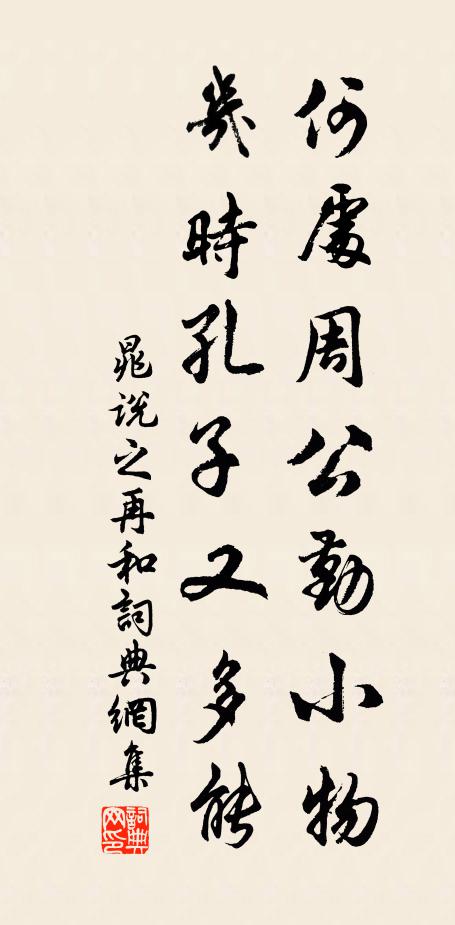 何處周公勤小物
幾時孔子又多能
晁說之再和詞典網集
詞典网印